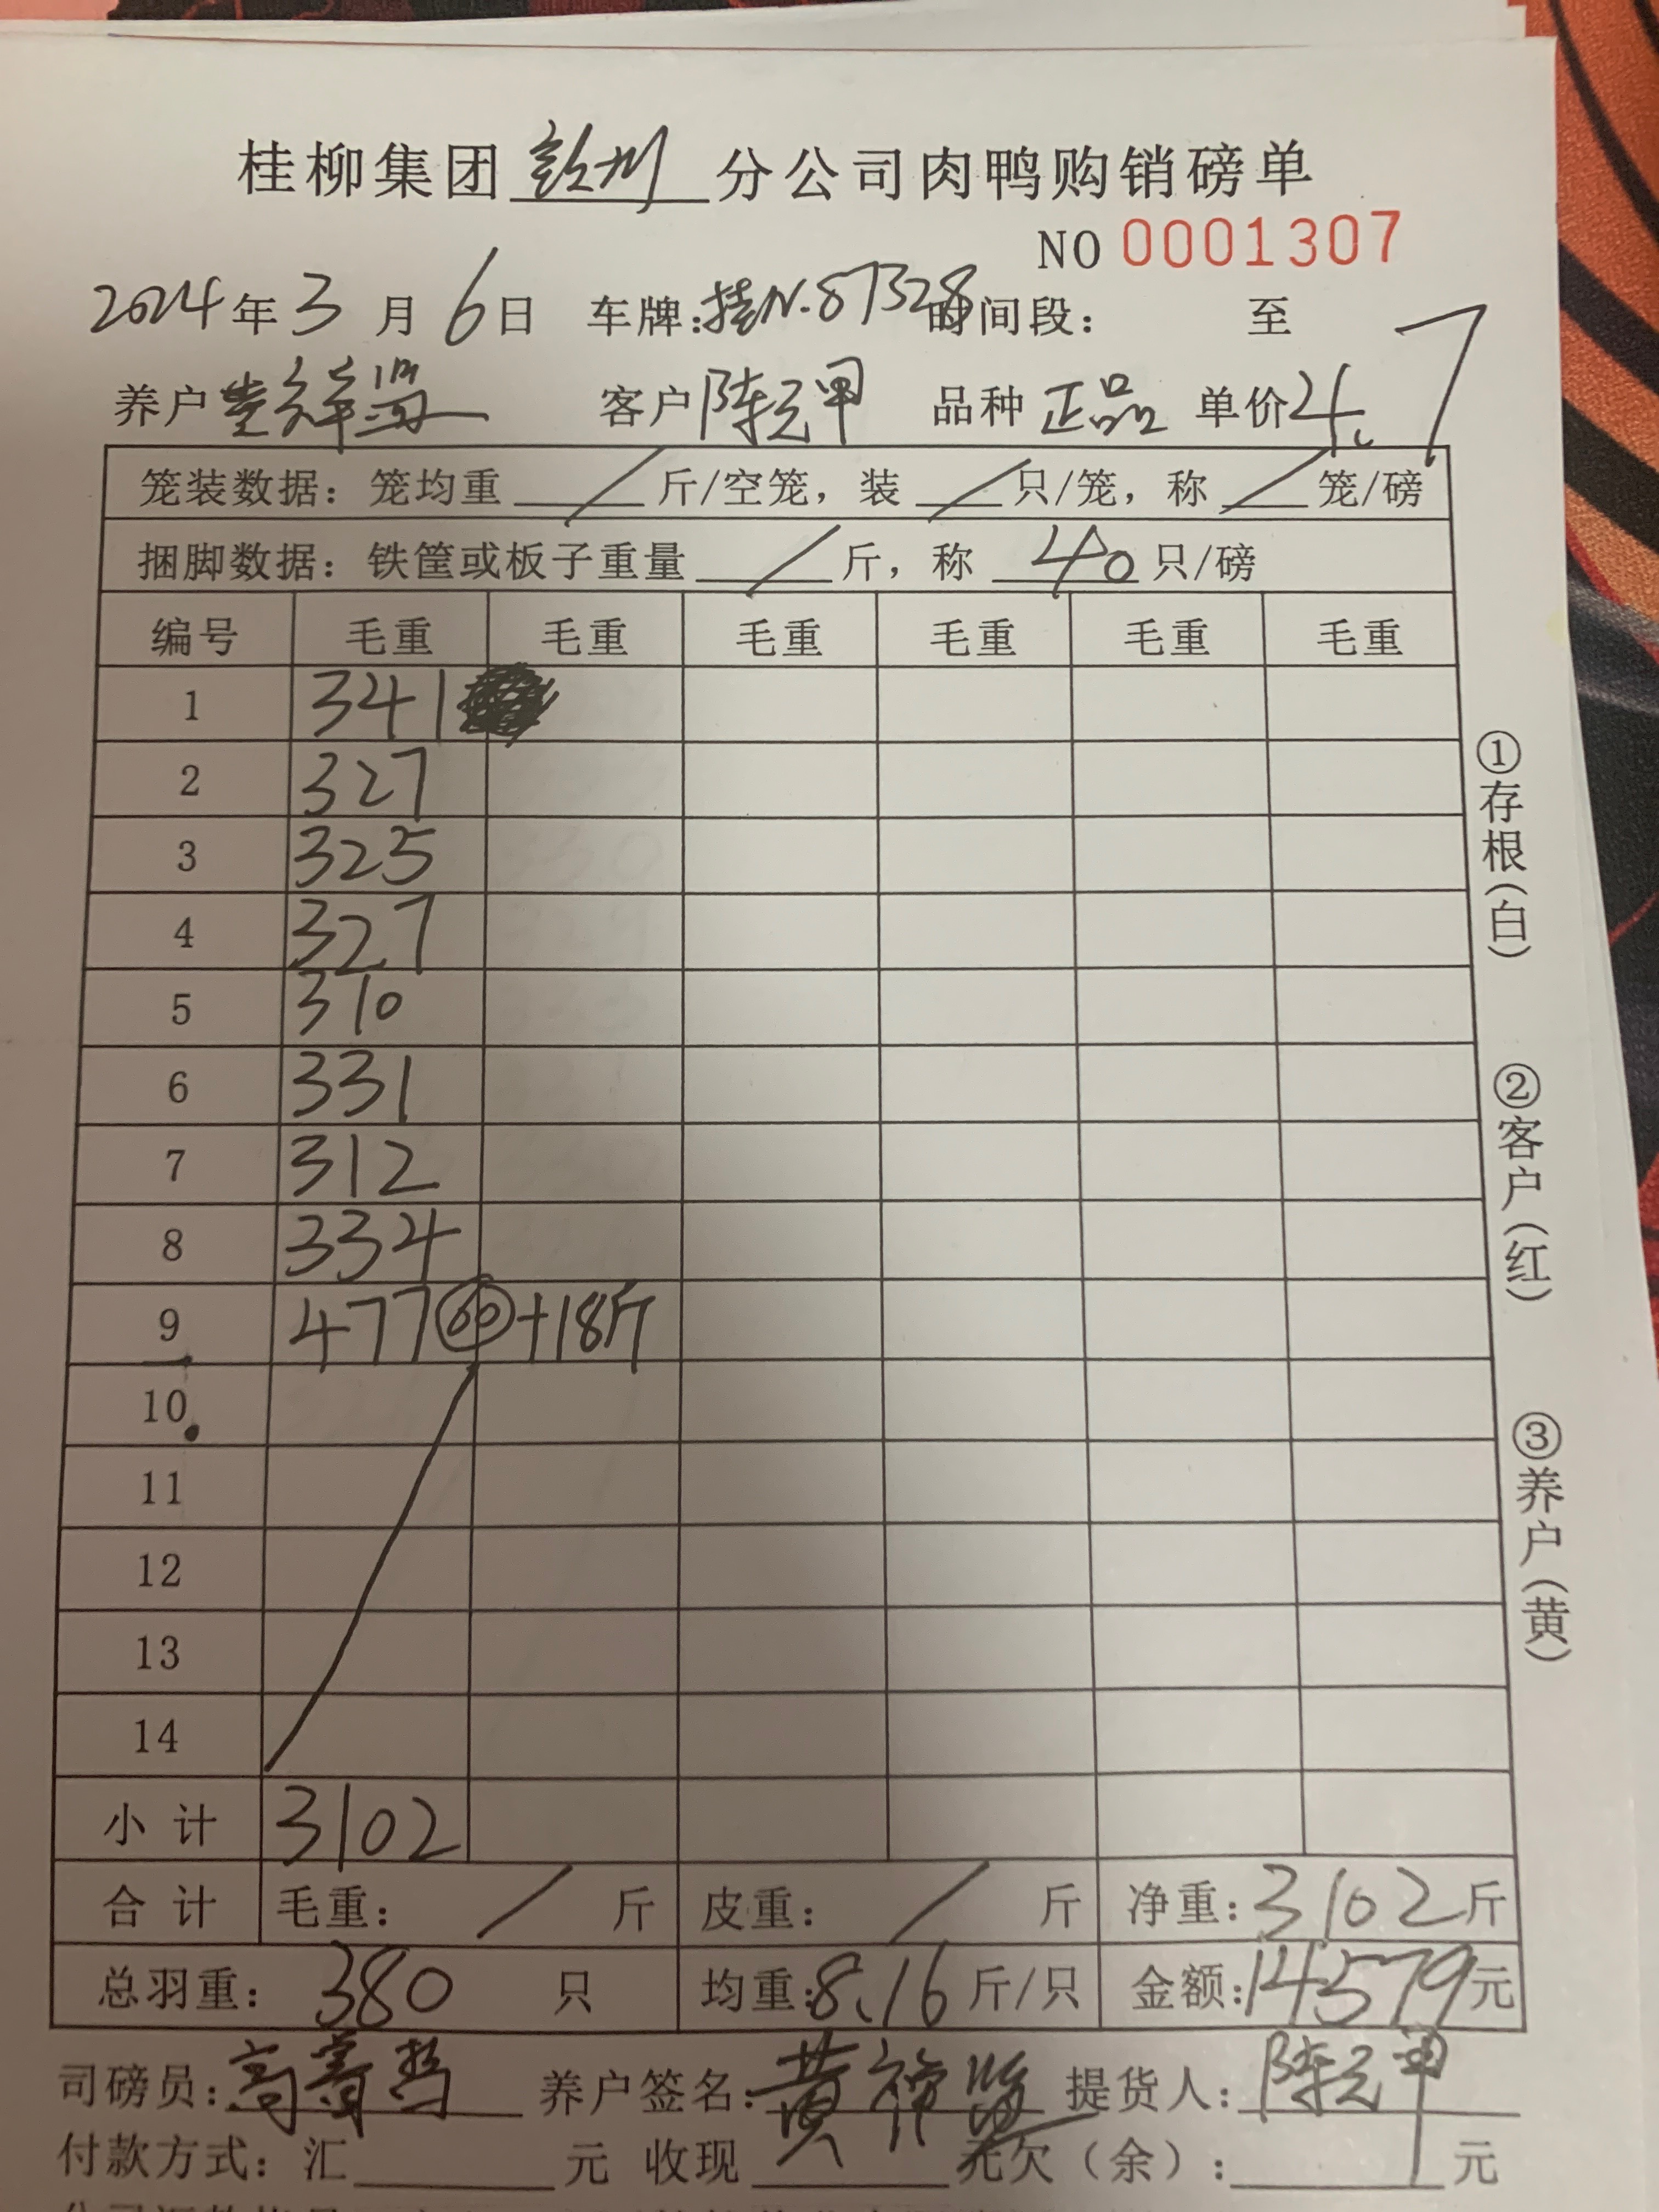 桂柳集团 钦州 分公司肉鸭购销磅单
NO 0001307
2024年3月6日 车牌:桂N·87328 时间段: 至
养户 黄祥 客户 陈元甲 品种 正品 单价 4.7
笼装数据: 笼均重 / 斤/空笼, 装 / 只/笼, 称 / 笼/磅
捆脚数据: 铁筐或板子重量 / 斤, 称 40 只/磅
编号 毛重 毛重 毛重 毛重 毛重 毛重
1 341
2 327
3 325
4 327
5 310
6 331
7 312
8 334
9 477 60 +18斤
10
11
12
13
14
小计 3102
合计 毛重: / 斤 皮重: / 斤 净重:3102斤
总羽重: 380 只 均重:8.16斤/只 金额:14579元
司磅员:高 养户签名:黄祥 提货人:陈元甲
付款方式: 汇 元 收现 元欠(余): 元
①存根(白)
②客户(红)
③养户(黄)